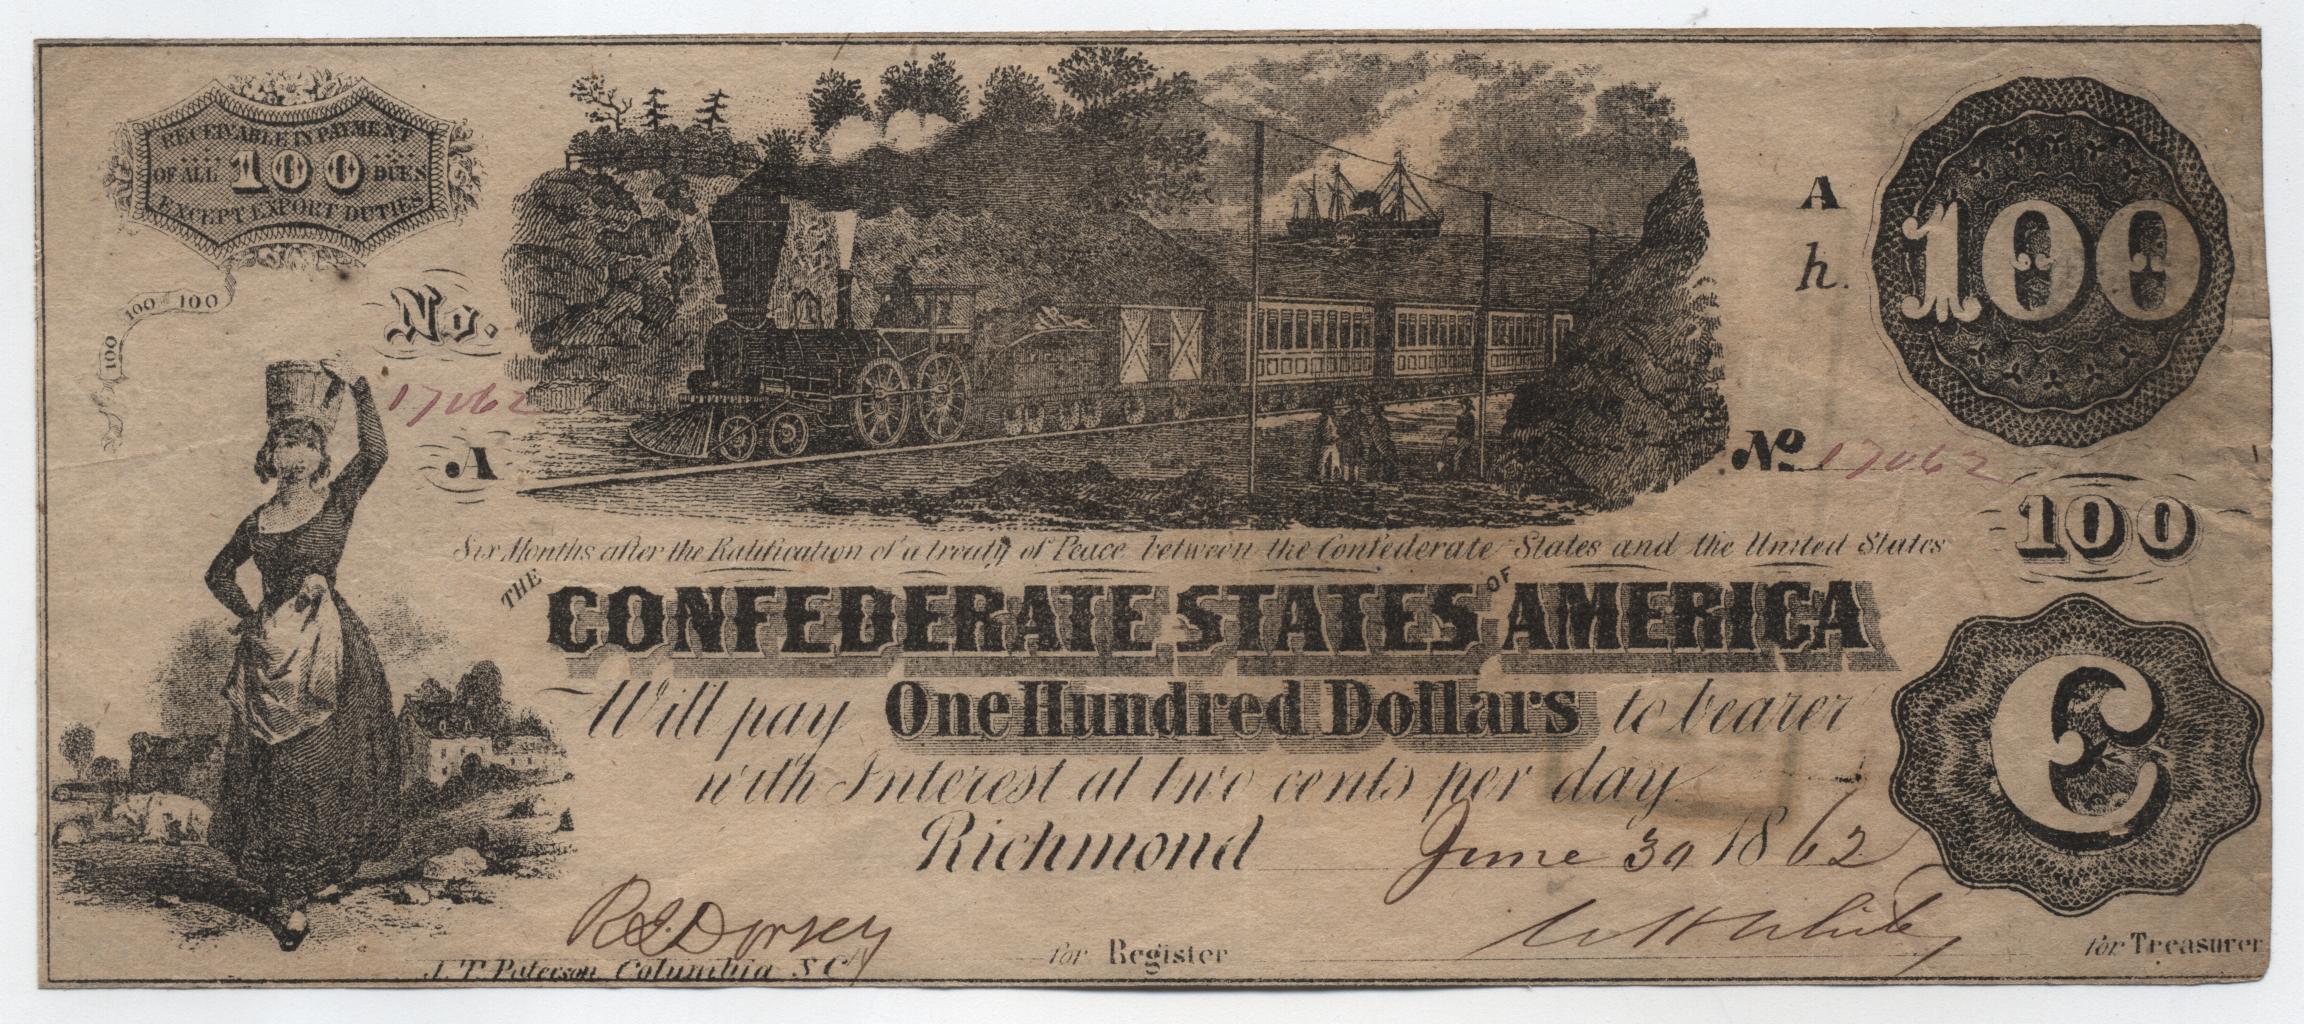 RECEIVABLE IN PAYMENT
OF ALL 100 DUES
EXCEPT EXPORT DUTIES
100 100 100
No.
17062
A
A
h.
100
No 17062
100
Six Months after the Ratification of a treaty of Peace between the Confederate States and the United States
THE CONFEDERATE STATES OF AMERICA
Will pay One Hundred Dollars to bearer
with Interest at two cents per day
C
Richmond June 30 1862
R S Dorsey
for Register
for Treasurer
J. T. Paterson Columbia S C